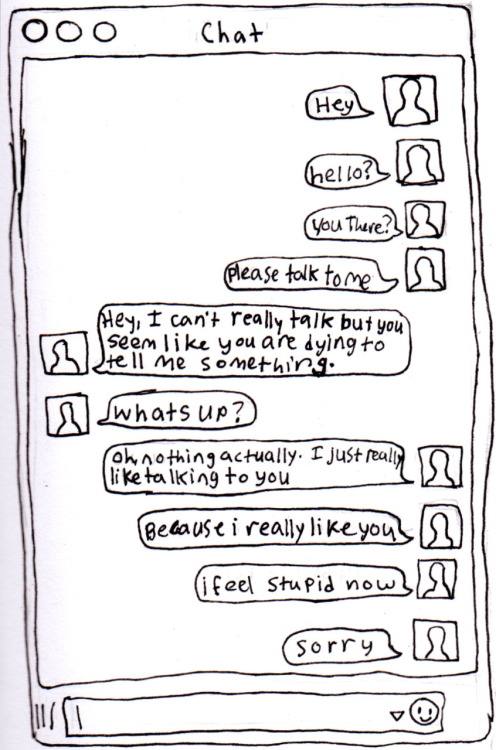 Chat
Hey
hello?
you There?
please talk to me
Hey, I can't really talk but you
seem like you are dying to
tell me something.
whats up?
oh, nothing actually. I just really
like talking to you
Because i really like you
i feel stupid now
sorry